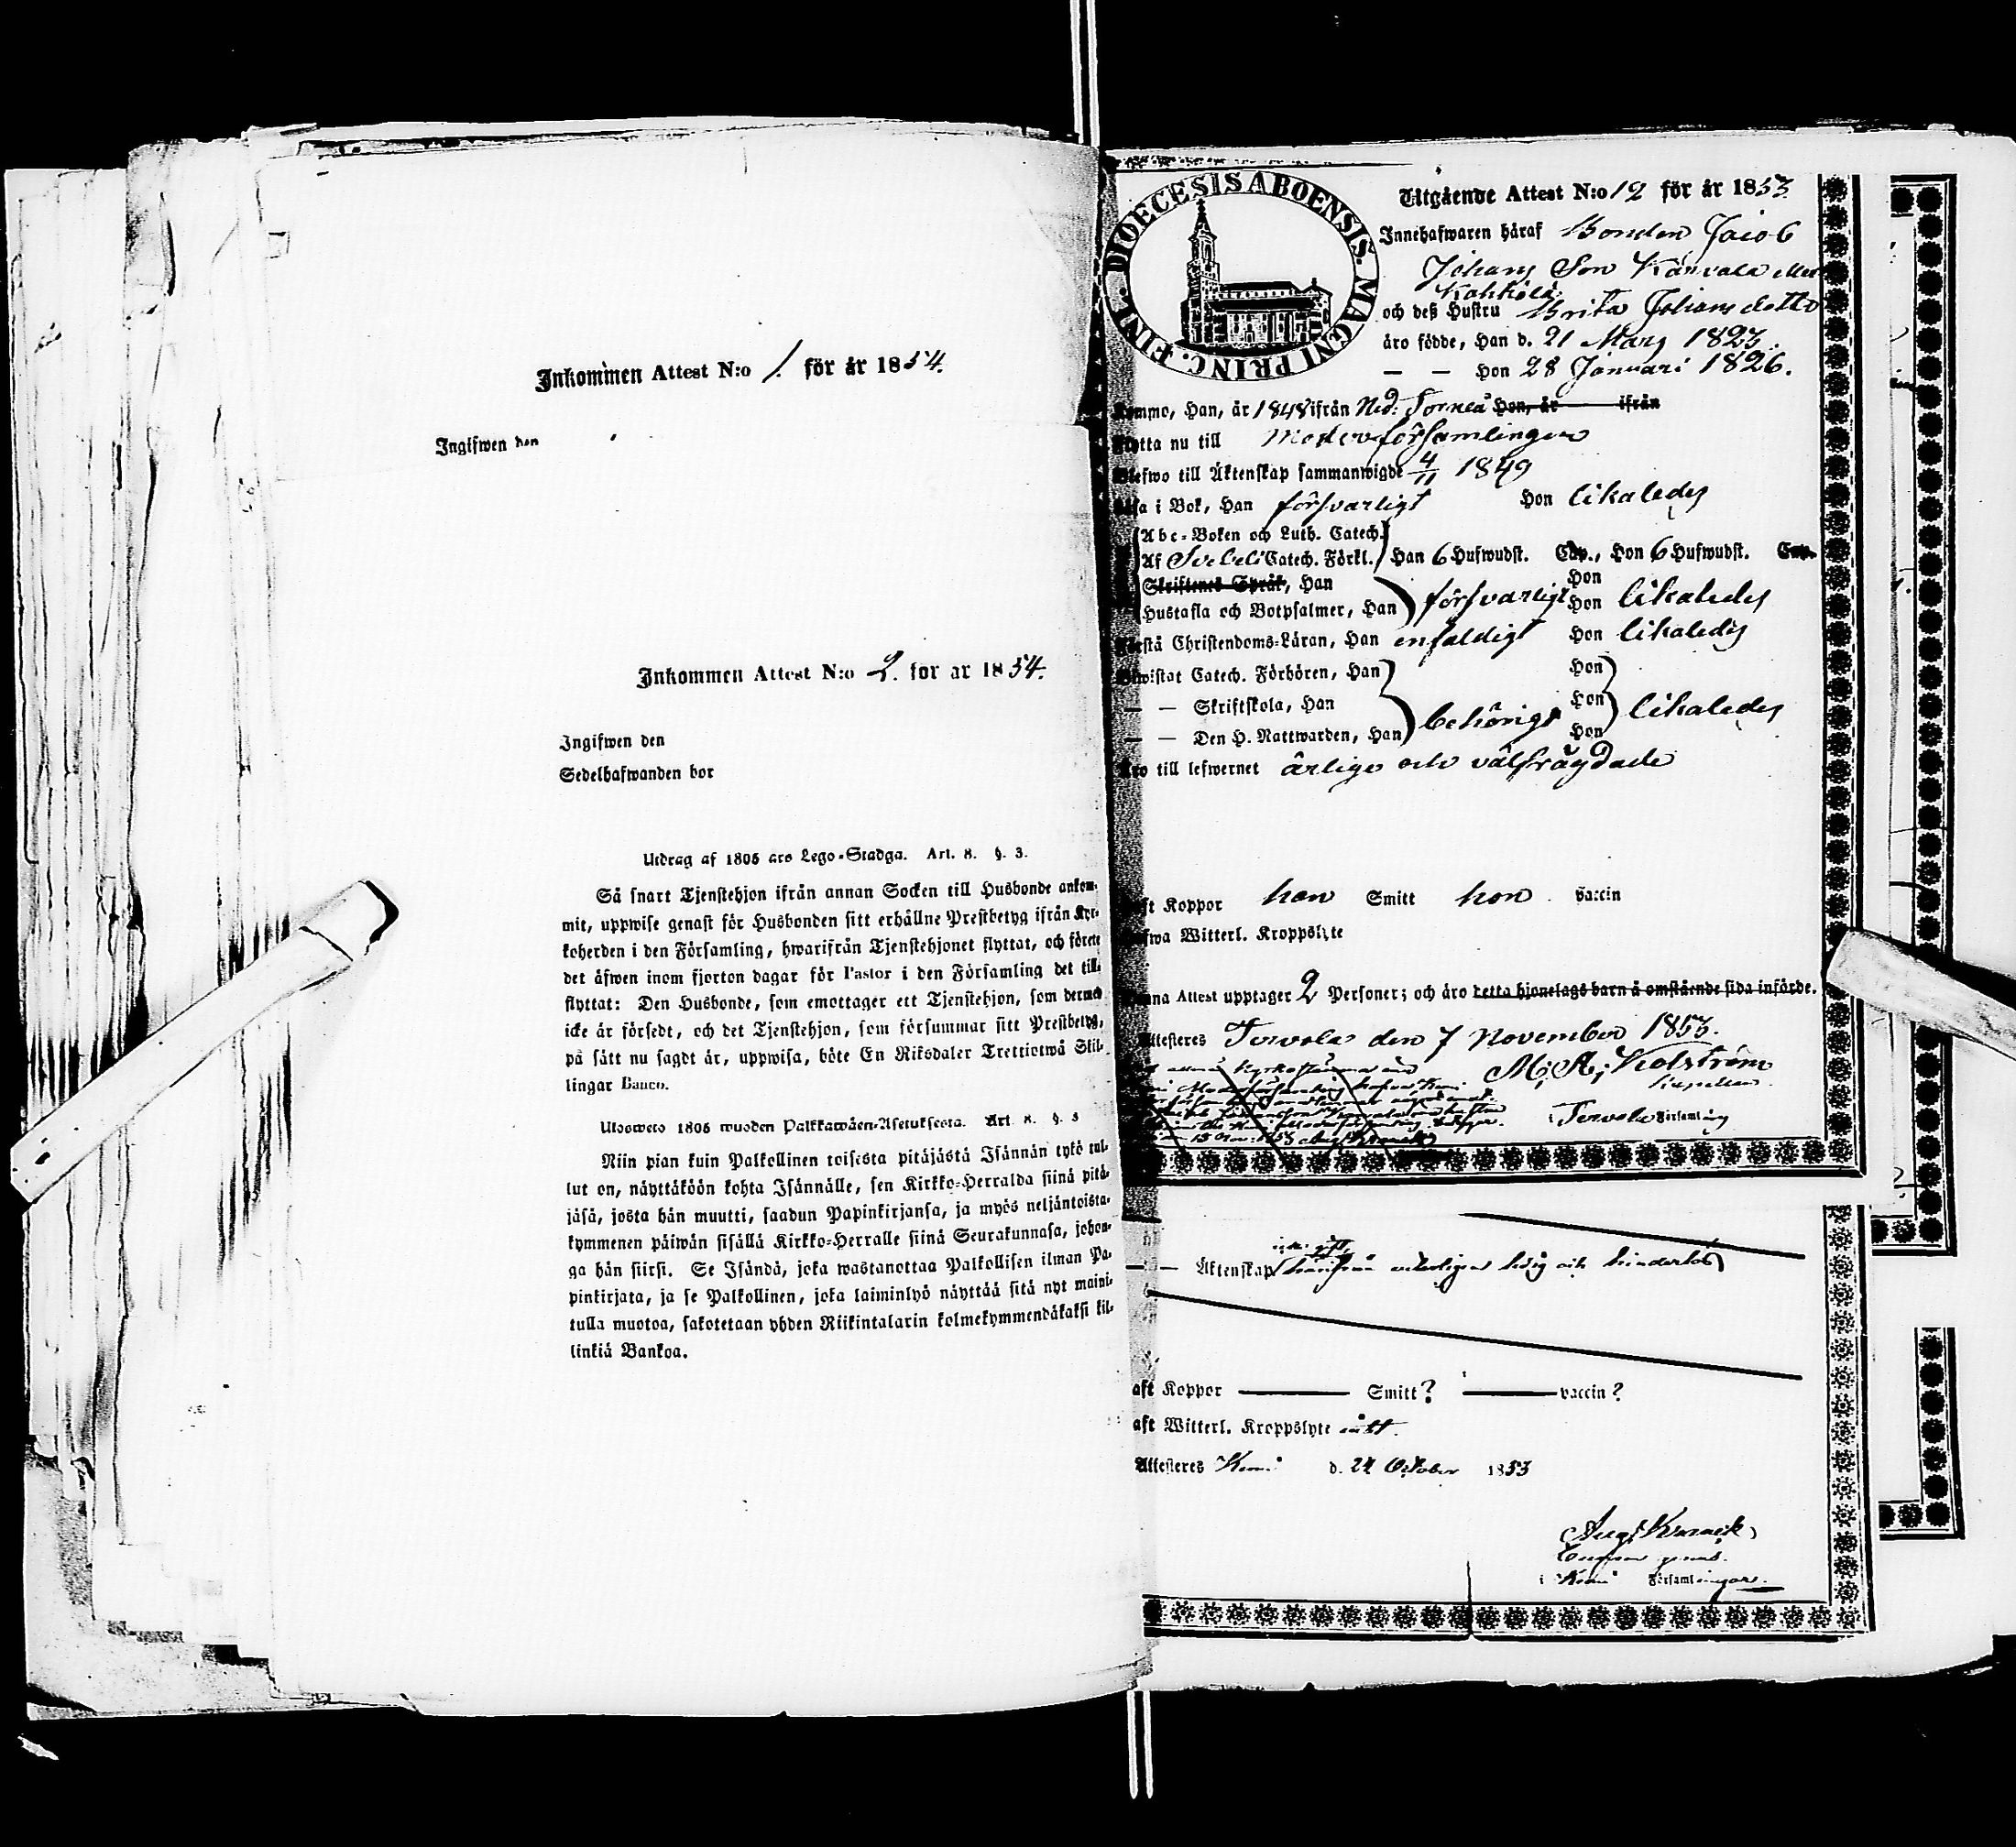 Inkommen Attest N:o 1. för år 1854.
Ingifwen den
Inkommen Attest N:o 2. för år 1854.
Ingifwen den
Sedelhafwanden bor
Utdrag af 1805 års Lego-Stadga. Art. 8. §. 3.
Så snart Tjenstehjon ifrån annan Socken till Husbonde ankom-
mit, uppwise genast för Husbonden sitt erhållne Prestbetyg ifrån Kyr-
koherden i den Församling, hwarifrån Tjenstehjonet flyttat, och förete
det äfwen inom fjorton dagar för Pastor i den Församling det till-
flyttat: Den Husbonde, som emottager ett Tjenstehjon, som dermed
icke är försedt, och det Tjenstehjon, som försummar sitt Prestbetyg,
på sätt nu sagdt är, uppwisa, böte En Riksdaler Trettiotwå Skil-
lingar Banco.
Ulosweto 1805 wuoden Palkkawäen-Asetuksesta. Art. 8. §. 3
Niin pian kuin Palkollinen toisesta pitäjästä Isännän tykö tul-
lut on, näyttäköön kohta Isännälle, sen Kirkko-Herralda siinä pitä-
jäsä, josta hän muutti, saadun Papinkirjansa, ja myös neljäntoista-
kymmenen päiwän sisällä Kirkko-Herralle siinä Seurakunnasa, johon-
ga hän siirsi. Se Isändä, joka wastanottaa Palkollisen ilman Pa-
pinkirjata, ja se Palkollinen, joka laiminlyö näyttää sitä nyt maini-
tulla muotoa, sakotetaan yhden Riikintalarin kolmekymmendäkaksi kil-
linkiä Bankoa.
DIOECESIS ABOENSIS. MAGNI PRINC. FINL.
Utgående Attest N:o 12 för år 1853
Innehafwaren häraf Bonden Jacob
Johans Son Karvala eller
Kohkola
och deß Hustru Brita Johans dotter
äro födde, Han d. 21 Mars 1823.
— — Hon 28 Januari 1826.
Kommo, Han, år 1848 ifrån Ned: Torneå Hon, år ifrån
Flytta nu till Moderförsamlingen
Blefwo till Äktenskap sammanwigde 4/11 1849
Läsa i Bok, Han försvarligt Hon likaledes
Abc-Boken och Luth. Catech.
Af Svebeli Catech. Förkl. Han 6 Hufwudst. Cap., Hon 6 Hufwudst. Cap.
Skriftenes Språk, Han Hon
Hustafla och Botpsalmer, Han försvarligt Hon likaledes
Förstå Christendoms-Läran, Han enfaldigt Hon likaledes
Bewistat Catech. Förhören, Han Hon
— — Skriftskola, Han Hon
— — Den H. Nattwarden, Han behörigt Hon likaledes
Äro till lefwernet ärlige och välfrägdade
Haft Koppor han Smitt hon vaccin
Hafwa Witterl. Kroppslyte
Denna Attest upptager 2 Personer; och äro detta hjonelags barn å omstående sida införde.
Attesteres Tervola den 7 November 1853.
M. A. Kolström
Kapellan
Tervola Församling
— — Äktenskap härifrån veterligen ledig och hinderlös
aft Koppor Smitt? vaccin?
aft Witterl. Kroppslyte intet.
Attesteres Kemi d. 24 October 1853
i Kemi Församlingar.